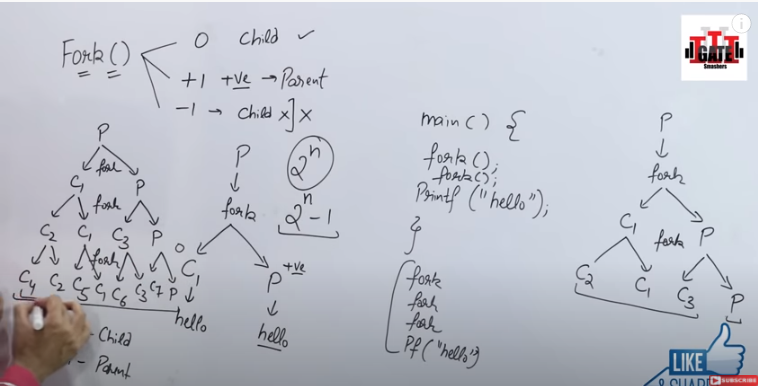 Fork()
0 child ✓
+1 +ve → Parent
-1 → child x] x
P
fork
C1 P
fork
C2 C1 C3 P
fork
C4 C2 C5 C1 C6 C3 C7 P
- Child
- Parent
P
fork
0 C1
P +ve
hello
hello
2^n
2^n - 1
main() {
fork();
fork();
Printf ("hello");
}
fork
fork
fork
Pf("hello")
P
fork
C1 fork P
C2 C1 C3 P
GATE
Smashers
i
LIKE
& SHARE
SUBSCRIBE